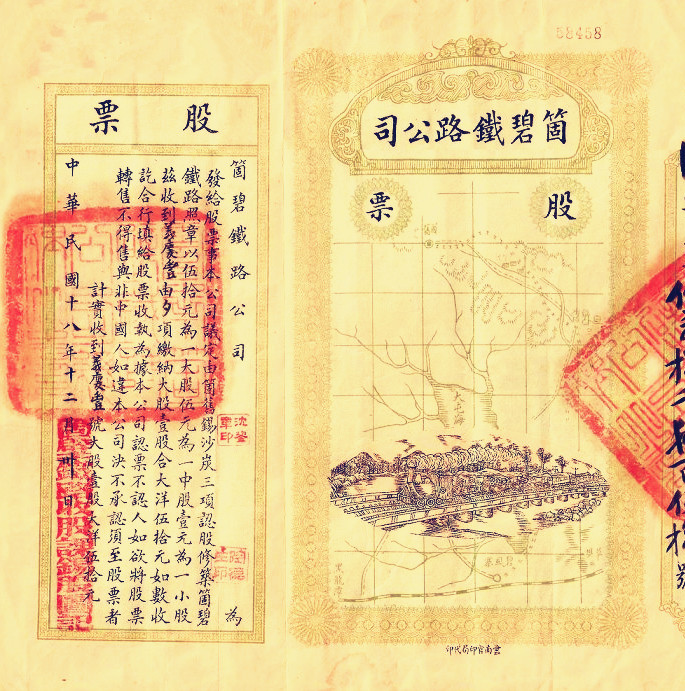 58458
箇碧鐵路公司
股票
大屯海
雲南官印局代印
股票
箇碧鐵路公司 為
發給股票事本公司議定由箇舊錫沙炭三項認股修築箇碧
鐵路照章以伍拾元為一大股伍元為一中股壹元為一小股
茲收到義慶壹由夕項繳納大股壹股合大洋伍拾元如數收
訖合行填給股票收執為據本公司認票不認人如欲將股票
轉售不得售與非中國人如違本公司決不承認須至股票者
計實收到義慶壹號大股壹股大洋伍拾元
中華民國十八年十二月卅日